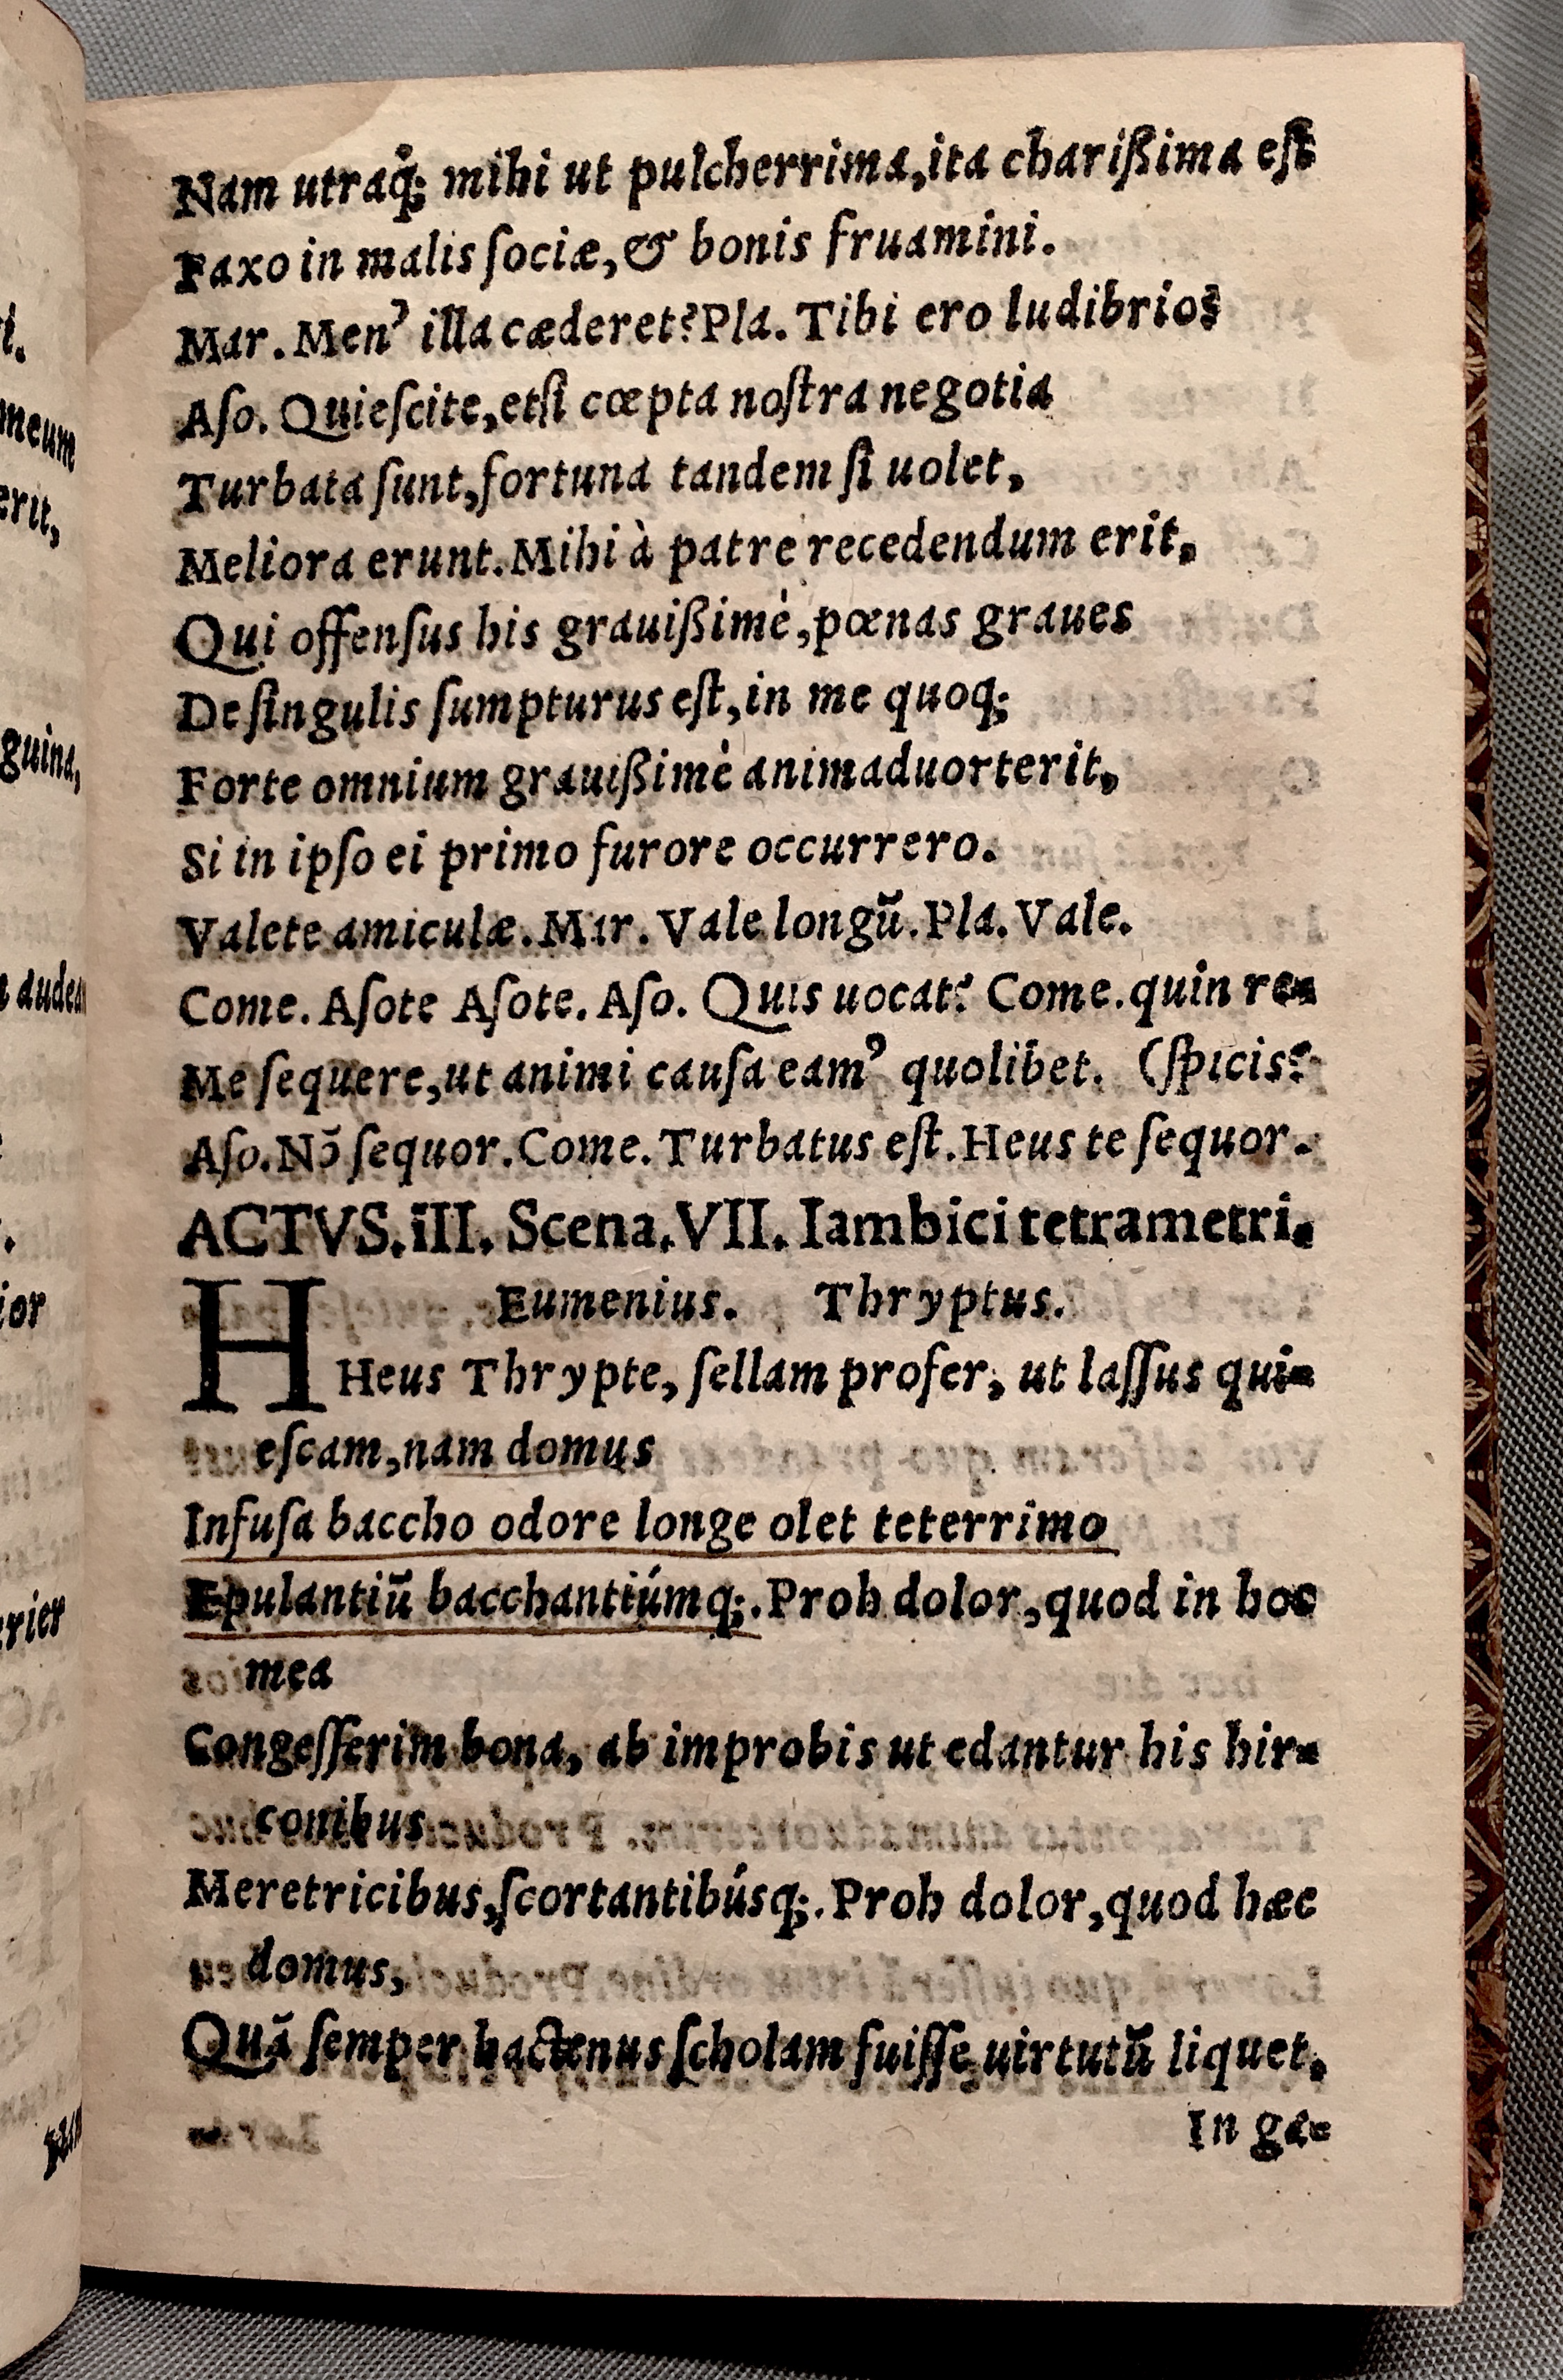 Nam utraq̊; mihi ut pulcherrima,ita chariſsima eſt
Faxo in malis ſociæ,& bonis fruamini.
Mar. Men' illa cæderet?Pla. Tibi ero ludibrio?
Aſo. Quieſcite,etſi cœpta noſtra negotia
Turbata ſunt,fortuna tandem ſi uolet,
Meliora erunt. Mihi à patre recedendum erit,
Qui offenſus his grauiſsimè,pœnas graues
De ſingulis ſumpturus eſt,in me quoq;
Forte omnium grauiſsimè animaduorterit,
Si in ipſo ei primo furore occurrero.
Valete amiculæ. Mar. Vale longũ. Pla. Vale.
Come. Aſote Aſote. Aſo. Quis uocat? Come. quin re-
Me ſequere,ut animi cauſa eamꝰ quolibet. (ſpicis?
Aſo. Nõ ſequor. Come. Turbatus eſt. Heus te ſequor.
ACTVS. III. Scena. VII. Iambici tetrametri.
Eumenius. Thryptus.
H Heus Thrypte, ſellam profer, ut laſſus qui-
eſcam,nam domus
Infuſa baccho odore longe olet teterrimo
Epulantiũ bacchantiúmq;. Proh dolor,quod in hoc
mea
Congeſſerim bona, ab improbis ut edantur his hir-
conibus
Meretricibus,ſcortantibúsq;. Proh dolor,quod hæc
domus,
Quã ſemper hactenus ſcholam fuiſſe uirtutũ liquet,
In ga-